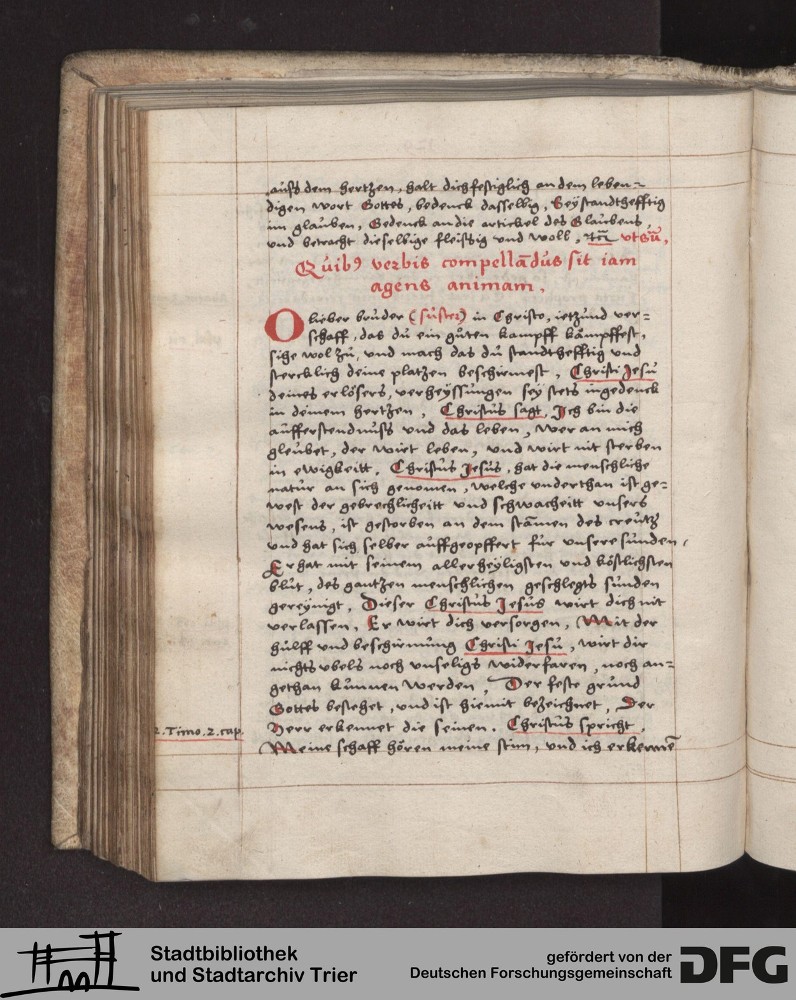 auss dem hertzen, halt dich festiglich an dem leben=
digen wort Gottes, bedenck dasselbig, Sey standthefftig
im glauben, Gedenck an die artickel des Glaubens,
und betracht dieselbige fleissig und woll, ut su̅,
Quib9 verbis compella̅dus sit iam
agens animam.
O lieber bruder (suster) in Christo, ietzund ver=
schaff, das du ein guten kampff kämpffest,
sihe wol zu, und mach das du standthefftig und
stercklich deine platzen beschirmest, Christi Jesu
deines erlösers, verheyssungen sey stets ingedenck
in deinem hertzen, Christus sagt, Ich bin die
aufferstendnuss und das leben, wer an mich
gleubet, der wirt leben, und wirt nit sterben
in ewigkeitt, Christus Jesus, hat die menschliche
natur an sich genomen, welche underthan ist ge=
west der gebrechlicheitt und schwacheitt unsers
wesens, ist gestorben an dem stammen des creutz
und hat sich selber auffgeopffert fur unsere sunden,
Er hat mit seinem allerheyligsten und köstlichsten
blut, des gantzen menschlichen geschlegts sunden
gereynigt, Dieser Christus Jesus wirt dich nit
verlassen, Er wirt dich versorgen, Mit der
hulff und beschirmung Christi Jesu, wirt dir
nichts ubels noch unseligs widerfaren, noch an=
gethan kunnen werden, Der feste grund
Gottes bestehet, und ist hiemit bezeichnet, Der
Herr erkennet die seinen. Christus spricht,
2. Timo. 2. cap.
Meine schaff hören meine stim, und ich erkenne̅
Stadtbibliothek
und Stadtarchiv Trier
gefördert von der
Deutschen Forschungsgemeinschaft
DFG